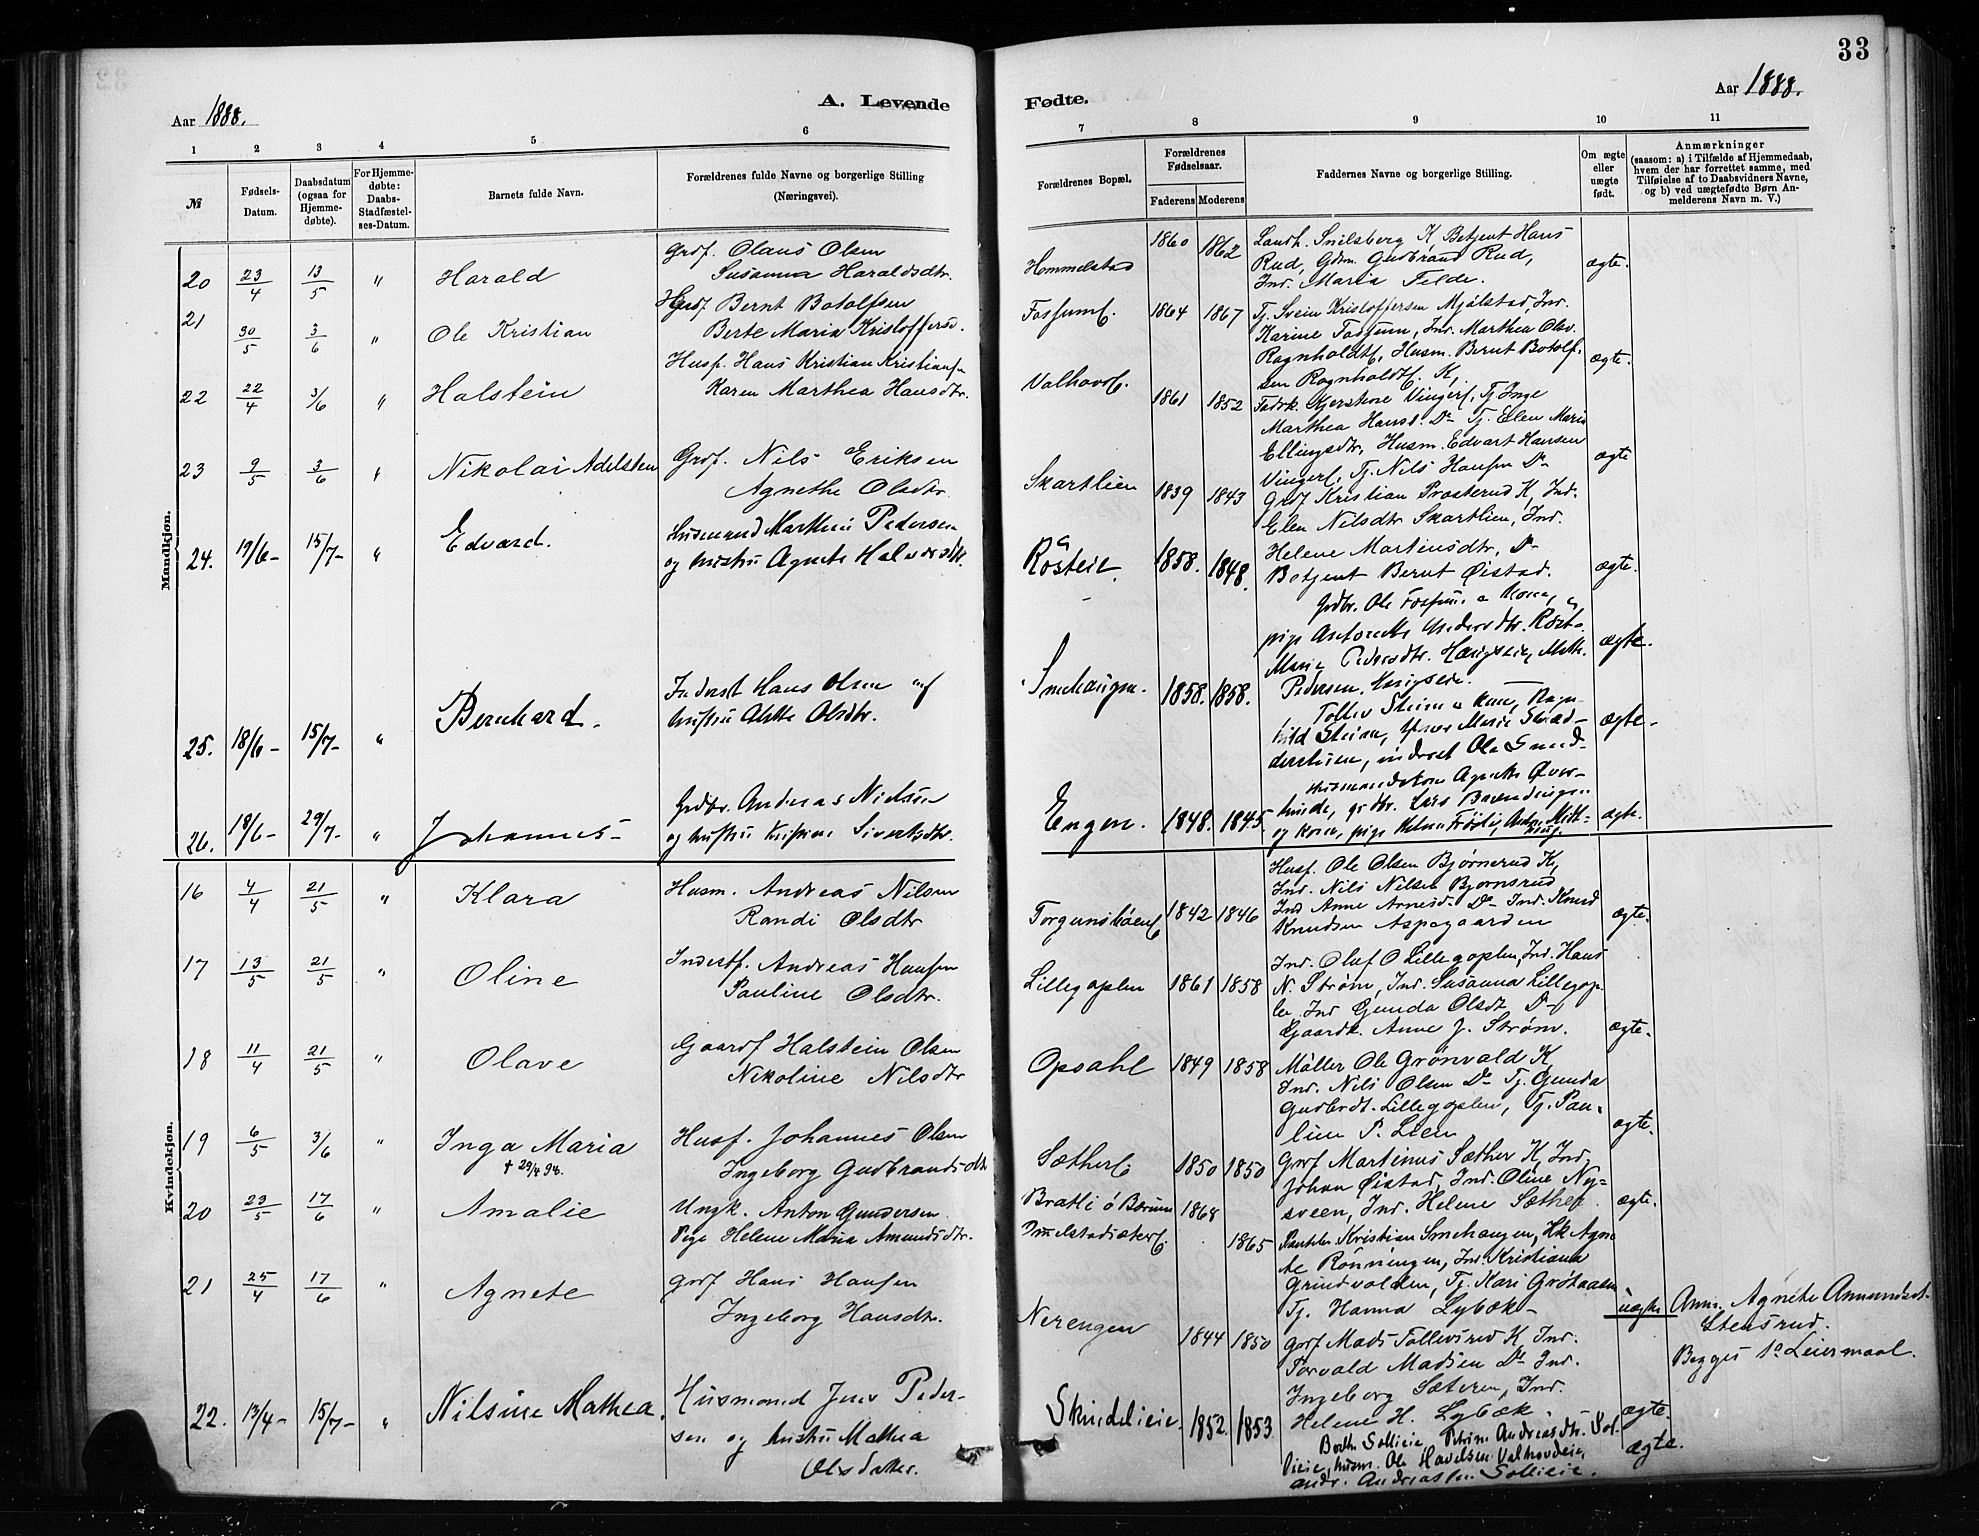 33
Aar 1888.
A. Levende
Fødte.
Aar 1888.
1 2 3 4 5 6 7 8 9 10 11
№
Fødsels-Datum.
Daabsdatum (ogsaa for Hjemme-døbte).
For Hjemme-døbte: Daabs-Stadfæstel-ses-Datum.
Barnets fulde Navn.
Forældrenes fulde Navne og borgerlige Stilling (Næringsvei).
Forældrenes Bopæl.
Forældrenes Fødselsaar.
Faderens Moderens
Faddernes Navne og borgerlige Stilling.
Om ægte eller uægte født.
Anmærkninger
(saasom: a) i Tilfælde af Hjemmedaab,
hvem der har forrettet samme, med
Tilføielse af to Daabsvidners Navne,
og b) ved uægtefødte Børn An-
melderens Navn m. V.)
Mandkjøn.
20 23/4 13/5 " Harald
Grdf. Olaus Olsen
Susanna Haraldsdtr.
Hommelstad 1860 1862
Landh. Snilsberg K, Betjent Hans
Rud, Gdm. Gudbrand Rud,
Ind. Maria Felde.
ægte.
21 30/5 3/6 " Ole Kristian
Bernt Botolfsen
Berte Maria Kristoffersd.
Fossume. 1864 1867
Tj. Svein Kristoffersen Mjølstad, Ind.
Karine Fossum, Ind. Marthea Olsd.
Ragnholdte, Husm. Bernt Botolf-
sen Ragnholdte. K,
ægte.
22 22/4 3/6 " Halstein
Husf. Hans Kristian Kristiansen
Karen Marthea Hansdtr.
Valhovde. 1861 1852
Fadrk. Kjerstine Vingere, Tj. Inge
Marthea Hansd. Do Tj. Elen Maria
Ellingsdtr, Husm. Edvart Hansen
Vingere, Tj. Nils Hansen Do
ægte
23 9/5 3/6 " Nikolai Adelsten
Grdf. Nils Eriksen
Agnethe Olsdtr.
Skartlien 1839 1843
Grdf Kristian Prosterud K, Ind.
Elen Nilsdtr Skartlien, Ind.
Helene Martinsdtr, Do
Betjent Bernt Øistad.
ægte.
24. 19/6- 15/7- " Edvard.
Husmand Marthin Pedersen
og hustru Agnete Halvorsdtr.
Røsteie. 1858. 1848.
Grdbr. Ole Fossum og Kone,
pige Antonette Andersdtr. Røst-
Marie Pedersdtr. Haugseie, Math.
Pedersen. Haugseie.
ægte.
25. 18/6- 15/7- " Bernhard.
Inderst Hans Olsen og
hustru Alette Olsdtr.
Smehaugen. 1858. 1858.
Tollev Steien og Kone, Ragn-
hild Steien, Marie Smed-
derstuen, inderst Ole Smed-
ægte.
26. 19/6- 29/7- " Johannes-
Grdbr. Anderas Nielsen
og hustru Kristine Sivertsdtr.
Engen. 1848. 1845.
husmandskone Agnethe Over-
hinde, grdbr. Lars Brændengen
og kone, pige Helene Frøslie,
ægte.
Kvindekjøn.
16 4/4 21/5 " Klara
Husm. Andreas Nilsen
Randi Olsdtr
Torgunsbøene 1842 1846
Husf. Ole Olsen Bjørnerud K,
Ind. Nils Nilsen Bjørnsrud
Ind Anne Arnesd. Do Ind. Knud
Knudsen Aspegaarden
ægte.
17 13/5 21/5 " Oline
Inderstf. Andreas Hansen
Pauline Olsdtr.
Lillegoplen 1861 1858
Ind. Oluf O Lillegoplen, Ind. Hans
N. Strøm, Ind. Susanna Lillegop-
len Ind Gunda Olsdt Do
Gaardk. Anne J. Strøm.
ægte.
18 11/4 21/5 " Olave
Gaardf Halstein Olsen
Nikoline Nilsdtr
Opsahl 1849 1858
Møller Ole Grønvald K
Ind. Nils Olsen Do Tj. Gunda
Gudbrdt. Lillegoplen, Tj. Pau-
line P. Lien
ægte.
19 6/5 3/6 " Inga Maria
† 29/4 98.
Husf. Johannes Olsen
Ingeborg Gudbrandsdtr
Sæthere 1850 1850
Grdf Martinus Sæther K, Ind,
Johan Øistad, Ind. Oline Ny-
sveen, Ind. Helene Sæther
ægte.
20 23/5 17/6 " Amalie
Ungk. Anton Gundersen
Pige Helene Maria Amundsdtr.
Bratli ø Børum 1868
1865
Kristian Smehaugen, Hk Agne
te Rønningen, Ind. Kristiana
Grindvolden, Tj. Kari Grøtaasen
Tj. Hanna Lybæk-
uægte Anm. Agnete Amundsdt.
Stensrud.
Begges 1ste Leiermaal.
21 25/4 17/6 " Agnete
Grdf Hans Hansen
Ingeborg Hansdtr.
Nerengen 1844 1850
Grdf Mads Tollevsrud K Ind.
Torvald Madsen Do Ind.
Ingeborg Sæteren, Ind.
Helene H. Lybæk
ægte.
22. 13/4- 15/7- " Nilsine Mathea.
Husmand Jens Peder-
sen og hustru Mathea
Olsdatter.
Skindelieie 1852. 1853
Berthe Sollieie, Petrine Andreasdtr. Sol-
lieie, husm. Ole Havelsen Valhovdeie,
Andr. Andreassen Sollieie.
ægte.